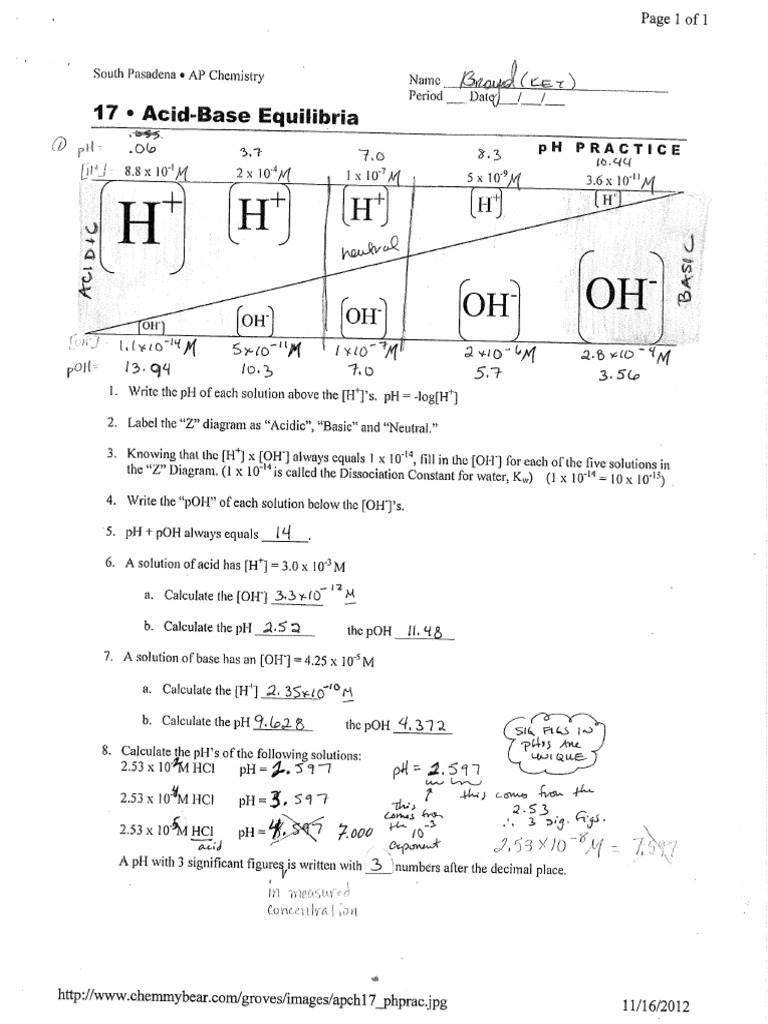 Page 1 of 1
South Pasadena • AP Chemistry
Name Broyd (KEY)
Period ___ Date __/__/__
17 • Acid-Base Equilibria
pH PRACTICE
① pH = .06 3.7 7.0 8.3 10.44
[H⁺] = 8.8 x 10⁻¹ M 2 x 10⁻⁴ M 1 x 10⁻⁷ M 5 x 10⁻⁹ M 3.6 x 10⁻¹¹ M
H⁺ H⁺ H⁺ H⁺ H⁺
ACIDIC neutral BASIC
OH⁻ OH⁻ OH⁻ OH⁻ OH⁻
[OH⁻] = 1.1x10⁻¹⁴ M 5x10⁻¹¹ M 1x10⁻⁷ M 2x10⁻⁶ M 2.8x10⁻⁴ M
pOH= 13.94 10.3 7.0 5.7 3.56
1. Write the pH of each solution above the [H⁺]'s. pH = -log[H⁺]
2. Label the "Z" diagram as "Acidic", "Basic" and "Neutral."
3. Knowing that the [H⁺] x [OH⁻] always equals 1 x 10⁻¹⁴, fill in the [OH⁻] for each of the five solutions in
the "Z" Diagram. (1 x 10⁻¹⁴ is called the Dissociation Constant for water, Kw) (1 x 10⁻¹⁴ = 10 x 10⁻¹⁵)
4. Write the "pOH" of each solution below the [OH⁻]'s.
5. pH + pOH always equals 14.
6. A solution of acid has [H⁺] = 3.0 x 10⁻³ M
a. Calculate the [OH⁻] 3.3x10⁻¹² M
b. Calculate the pH 2.52 the pOH 11.48
7. A solution of base has an [OH⁻] = 4.25 x 10⁻⁵ M
a. Calculate the [H⁺] 2.35x10⁻¹⁰ M
b. Calculate the pH 9.628 the pOH 4.372
SIG FIGS IN
pH's ARE
UNIQUE
8. Calculate the pH's of the following solutions:
2.53 x 10⁻³ M HCl pH = 2.597
pH = 2.597
this comes from the
2.53
∴ 3 sig. figs.
this
comes from
the 10⁻³
exponent
2.53 x 10⁻⁴ M HCl pH = 3.597
2.53 x 10⁻⁵ M HCl pH = 4.597 7.000
acid
2.53 x 10⁻⁸ M = 7.597
A pH with 3 significant figures is written with 3 numbers after the decimal place.
in measured
concentration
http://www.chemmybear.com/groves/images/apch17_phprac.jpg
11/16/2012